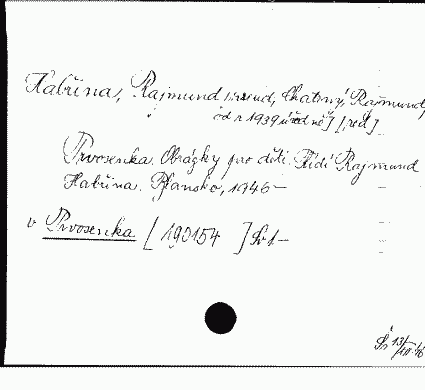 Habřina, Rajmund [pseud., Chatrný, Rajmund,
od r. 1939 úředně] [red.]
Prvosenka. Obrázky pro děti. Řídí Rajmund
Habřina. Blansko, 1946–
v Prvosenka [190154 ] Sv 1–